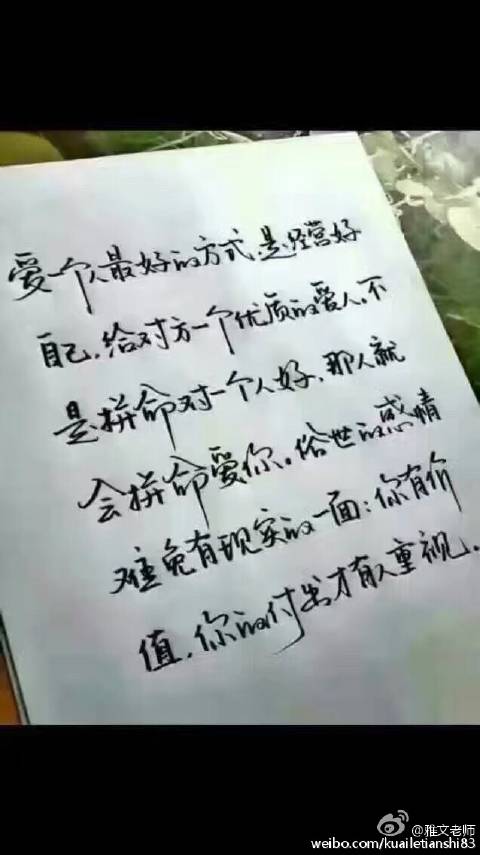 爱一个人最好的方式,是经营好
自己,给对方一个优质的爱人。不
是拼命对一个人好,那人就
会拼命爱你。俗世的感情
难免有现实的一面:你有价
值,你的付出才有人重视。
@雅文老师
weibo.com/kuailetianshi83